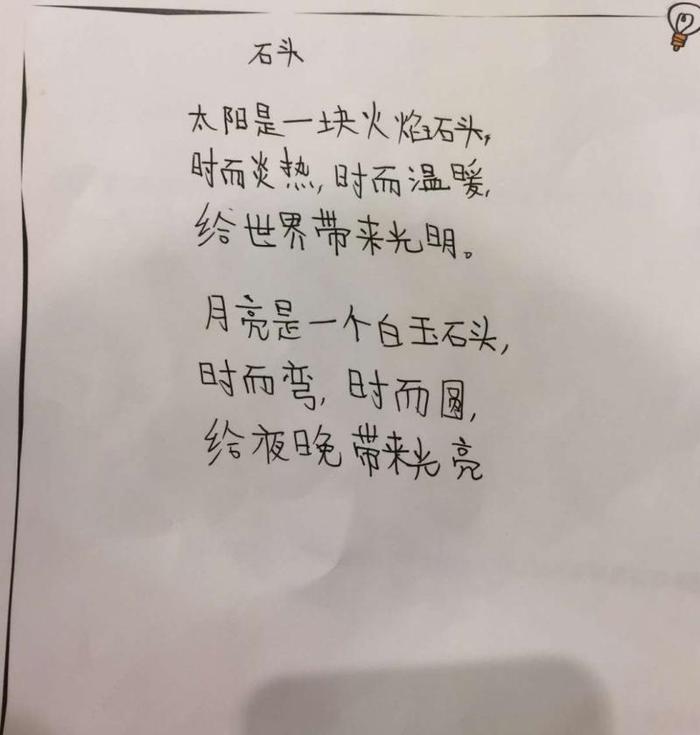 石头
太阳是一块火焰石头,
时而炎热,时而温暖,
给世界带来光明。
月亮是一个白玉石头,
时而弯,时而圆,
给夜晚带来光亮